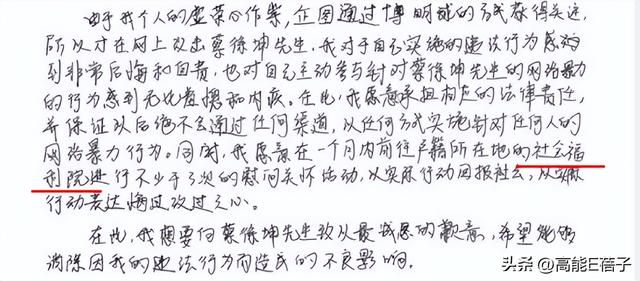 由于我个人的虚荣心作祟，企图通过博明诚的方式获得关注，
所以才在网上攻击蔡徐坤先生。我对于自己实施的违法行为感
到非常后悔和自责，也对自己主动参与针对蔡徐坤先生的网络暴力
的行为感到无比羞愧和内疚。在此，我愿意承担相应的法律责任，
并保证以后绝不会通过任何渠道，以任何方式实施针对任何人的
网络暴力行为。同时，我愿意在一个月内前往户籍所在地的社会福
利院进行不少于3次的慰问关怀活动，以实际行动回报社会，以实际
行动表达悔过改过之心。
在此，我想要向蔡徐坤先生致以最诚恳的歉意，希望能够
消除因我的违法行为而造成的不良影响。
头条 @高能E蓓子